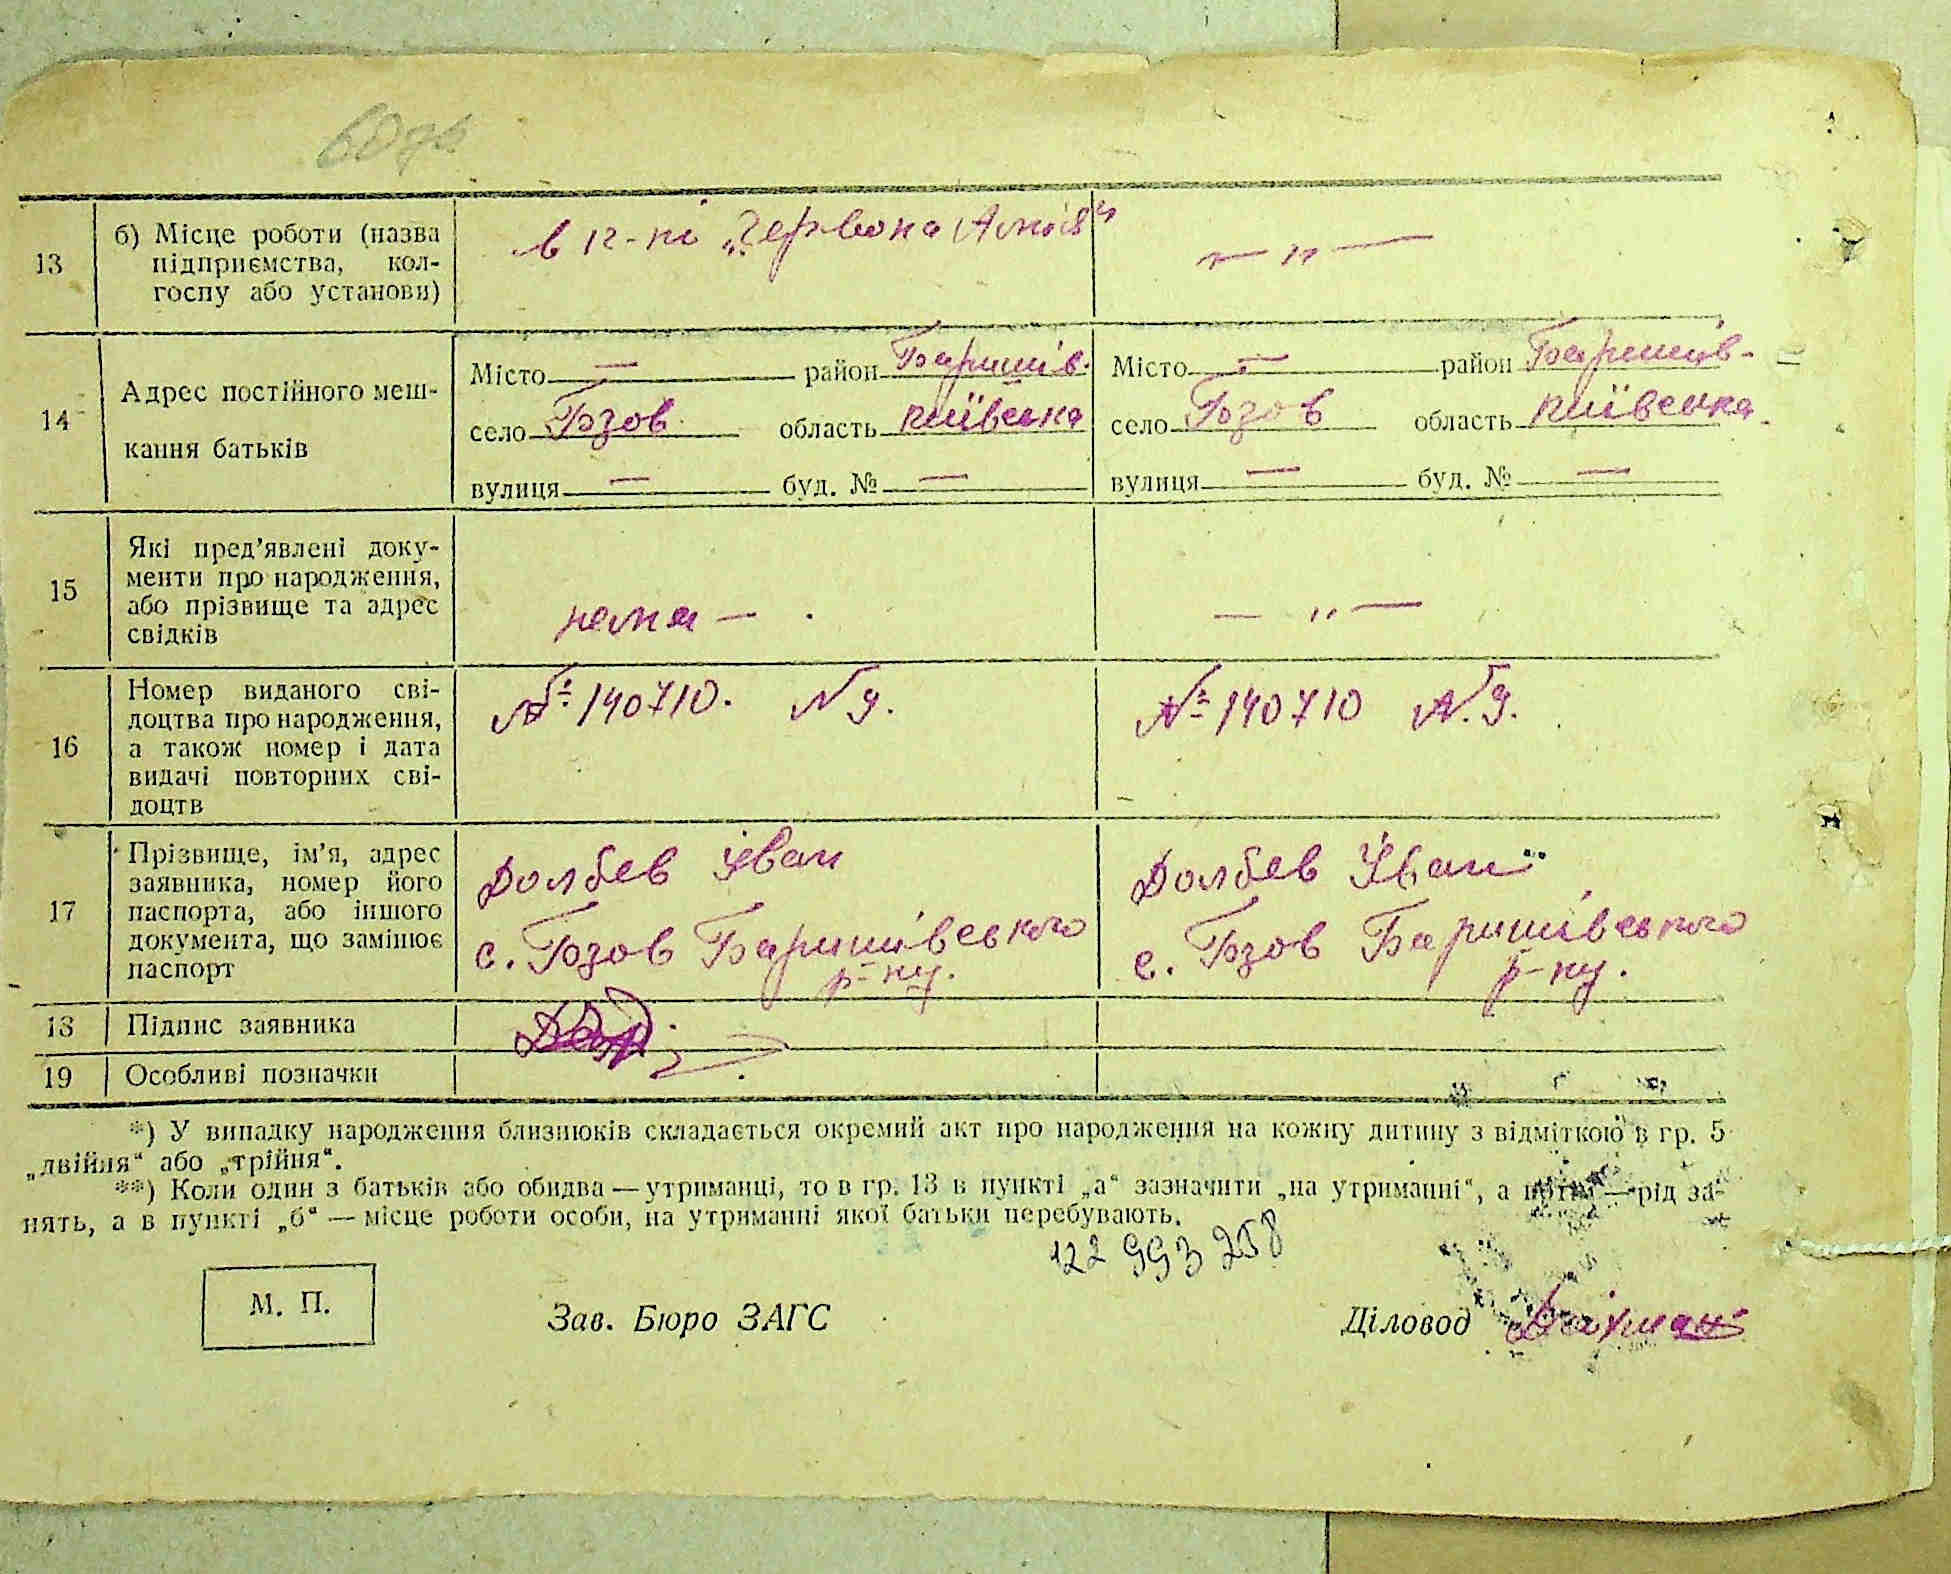 13 б) Місце роботи (назва підприємства, колгоспу або установи)
в к-пі „Червона Армія“
— „ —
14 Адрес постійного меш-
кання батьків
Місто — район Баришів.
село Бзов область Київська
вулиця — буд. № —
Місто — район Баришів-
село Бзов область Київська
вулиця — буд. № —
15 Які пред’явлені доку-
менти про народження,
або прізвище та адрес
свідків
нема —
— „ —
16 Номер виданого сві-
доцтва про народження,
а також номер і дата
видачі повторних сві-
доцтв
№ 140710. N 9.
№ 140710 N. 9.
17 Прізвище, ім’я, адрес
заявника, номер його
паспорта, або іншого
документа, що замінює
паспорт
Долбев Іван
с. Бзов Баришівського
р-ну.
Долбев Іван
с. Бзов Баришівського
р-ну.
18 Підпис заявника
19 Особливі позначки
*) У випадку народження близнюків складається окремий акт про народження на кожну дитину з відміткою в гр. 5
„двійня“ або „трійня“.
**) Коли один з батьків або обидва — утриманці, то в гр. 13 в пункті „а“ зазначити „на утриманні“, а потім — рід за-
нять, а в пункті „б“ — місце роботи особи, на утриманні якої батьки перебувають.
122 993 258
М. П.
Зав. Бюро ЗАГС
Діловод